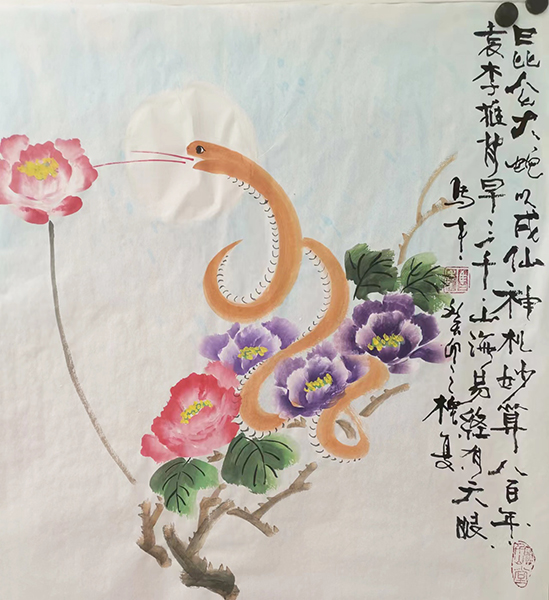 昆仑大蛇以成仙神机妙算八百年
袁李推背早三千山海易经有天眼
癸卯之槐夏